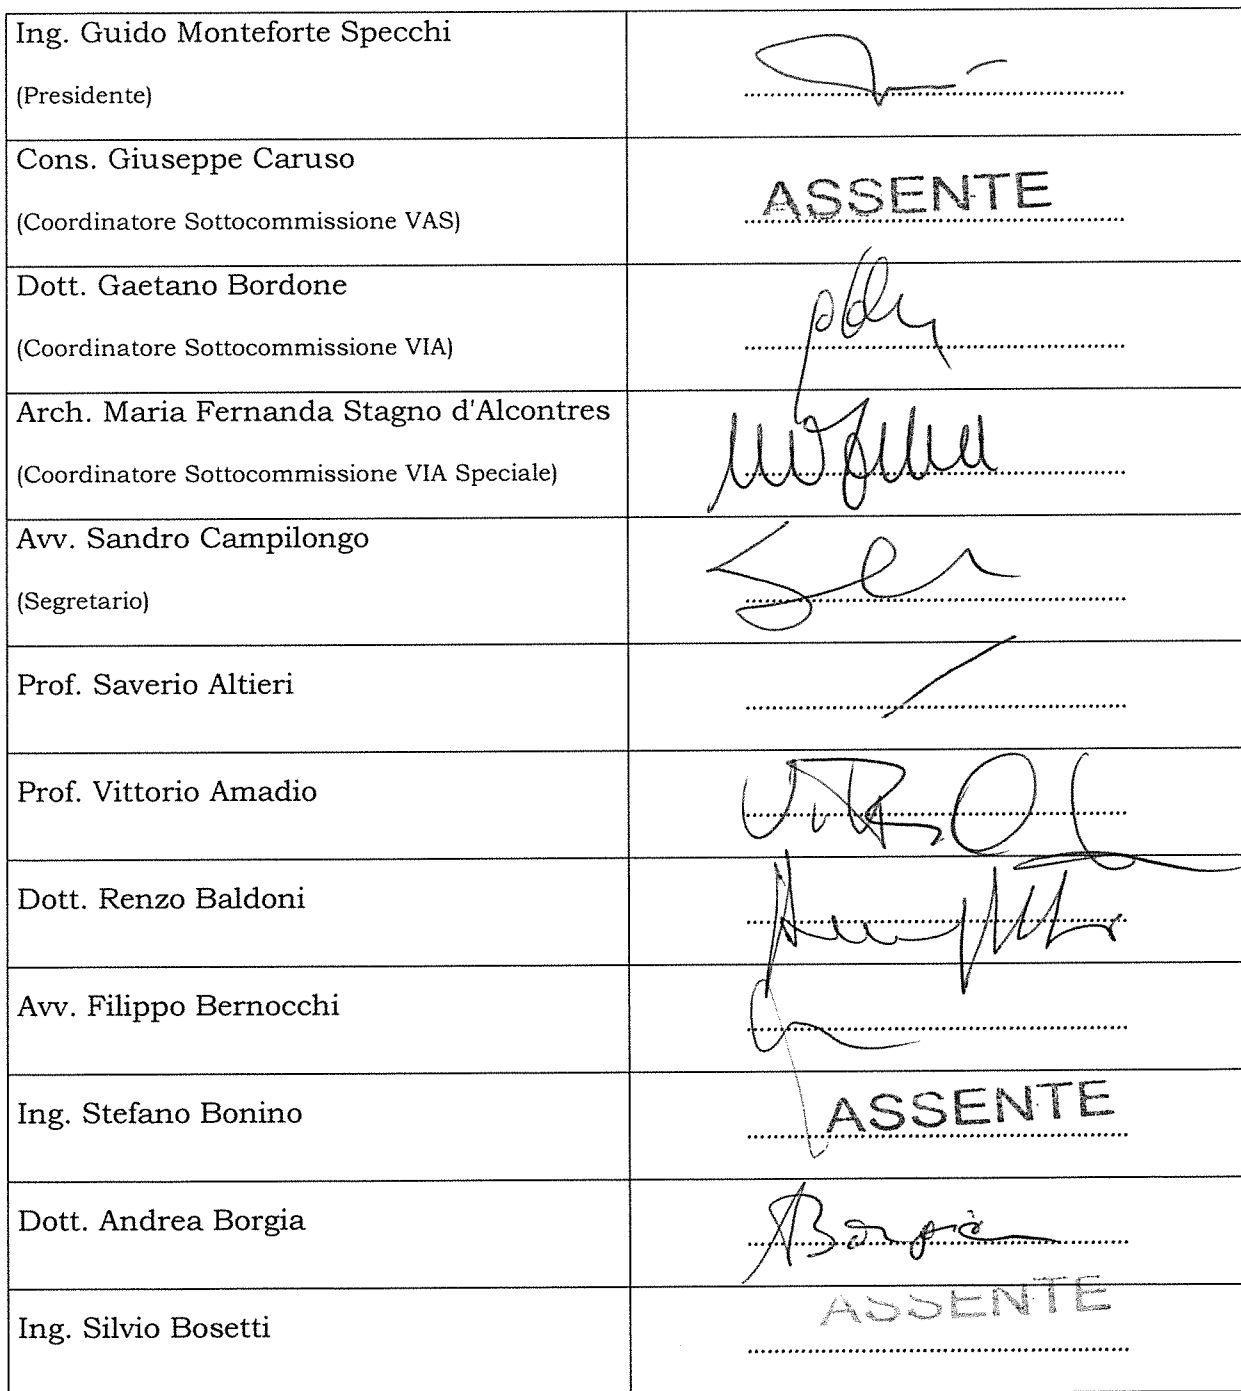 Ing. Guido Monteforte Specchi
(Presidente)
Cons. Giuseppe Caruso
(Coordinatore Sottocommissione VAS)
ASSENTE
Dott. Gaetano Bordone
(Coordinatore Sottocommissione VIA)
Arch. Maria Fernanda Stagno d'Alcontres
(Coordinatore Sottocommissione VIA Speciale)
Avv. Sandro Campilongo
(Segretario)
Prof. Saverio Altieri
Prof. Vittorio Amadio
Dott. Renzo Baldoni
Avv. Filippo Bernocchi
Ing. Stefano Bonino
ASSENTE
Dott. Andrea Borgia
ABorgia
Ing. Silvio Bosetti
ASSENTE